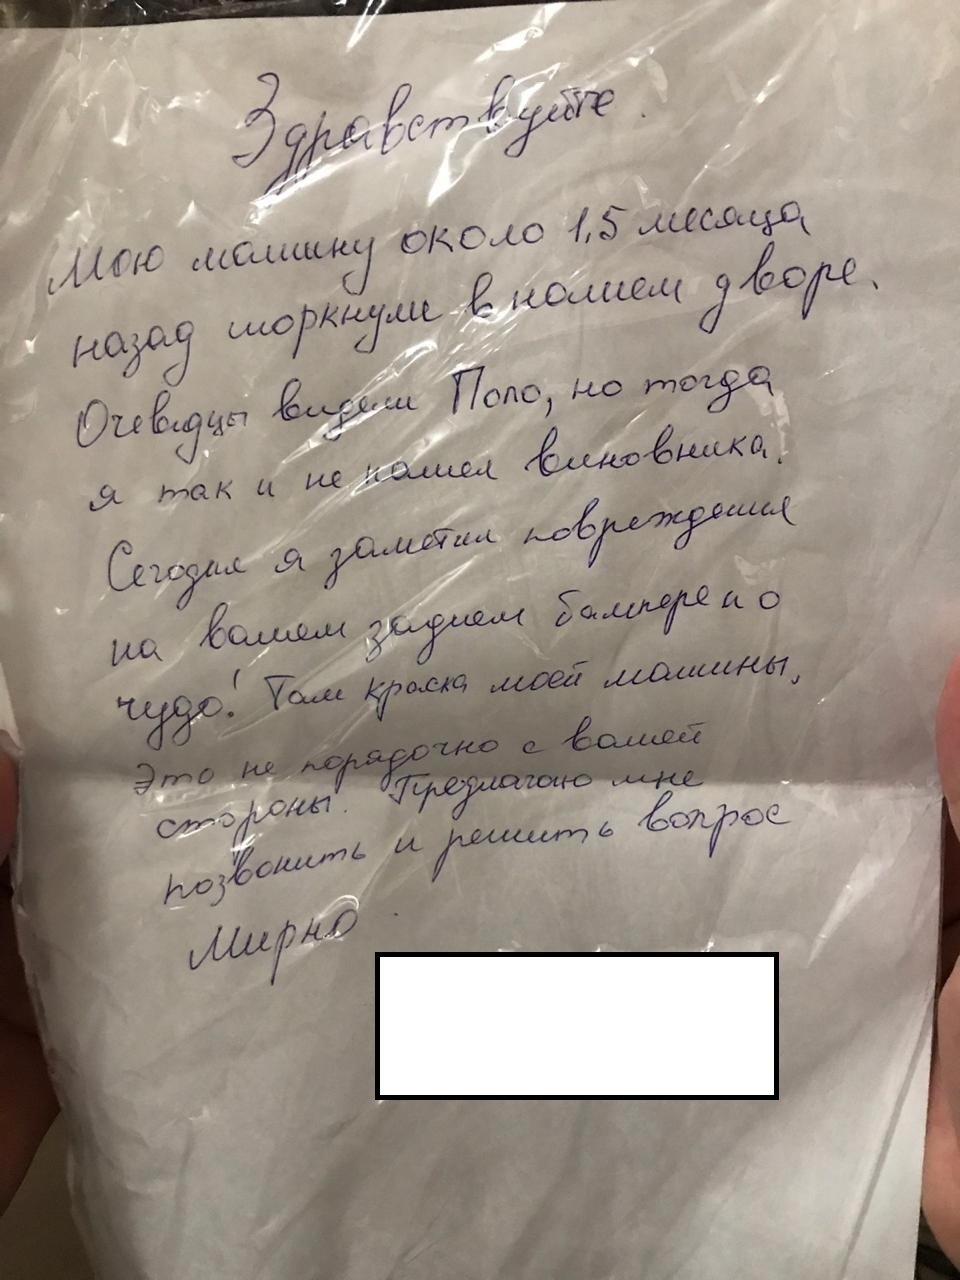 Здравствуйте.
Мою машину около 1,5 месяца
назад шоркнули в нашем дворе.
Очевидцы видели Поло, но тогда
я так и не нашел виновника.
Сегодня я заметил повреждения
на вашем заднем бампере и о
чудо! Там краска моей машины.
Это не порядочно с вашей
стороны. Предлагаю мне
позвонить и решить вопрос
Мирно